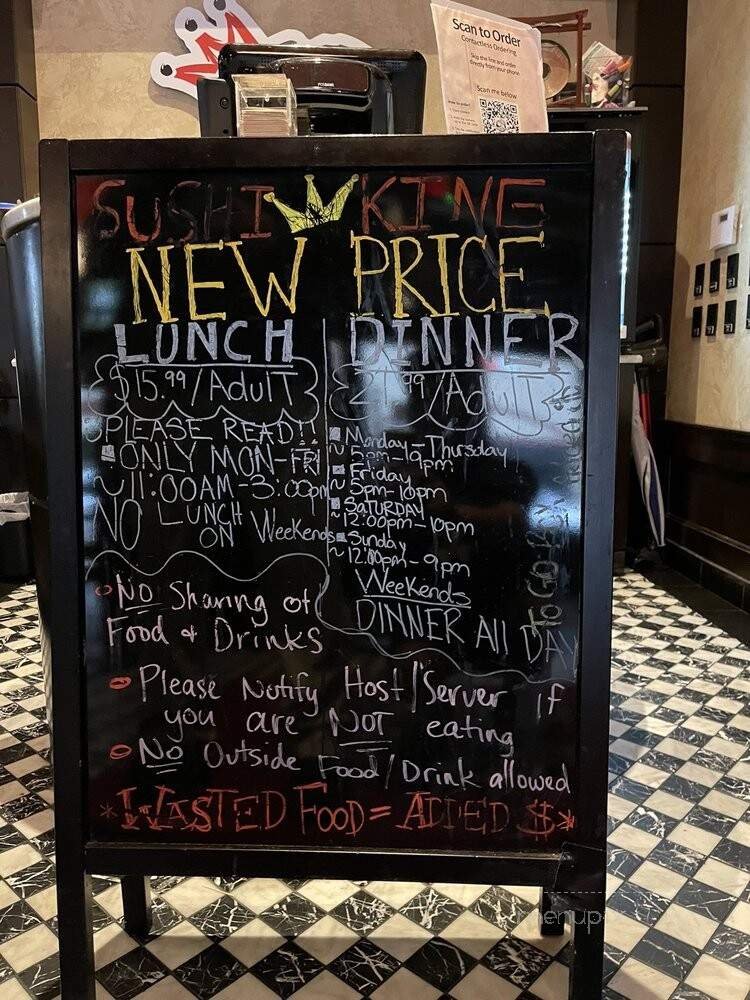 Scan to Order
Contactless Ordering
Skip the line and order
directly from your phone
Scan me below
SUSHI KING
NEW PRICE
LUNCH
$15.99/Adult
PLEASE READ!!
ONLY MON-FRI
~11:00AM-3:00pm
NO LUNCH
ON Weekends
DINNER
/Adult
Monday-Thursday
~5pm-9pm
Friday
~5pm-10pm
SATURDAY
~12:00pm-10pm
Sunday
~12:00pm-9pm
Weekends
DINNER All DAY
TO GO
NO Sharing of
Food & Drinks
Please Notify Host/Server if
you are NOT eating
No Outside Food/Drink allowed
*WASTED FOOD = ADDED $*
menupix